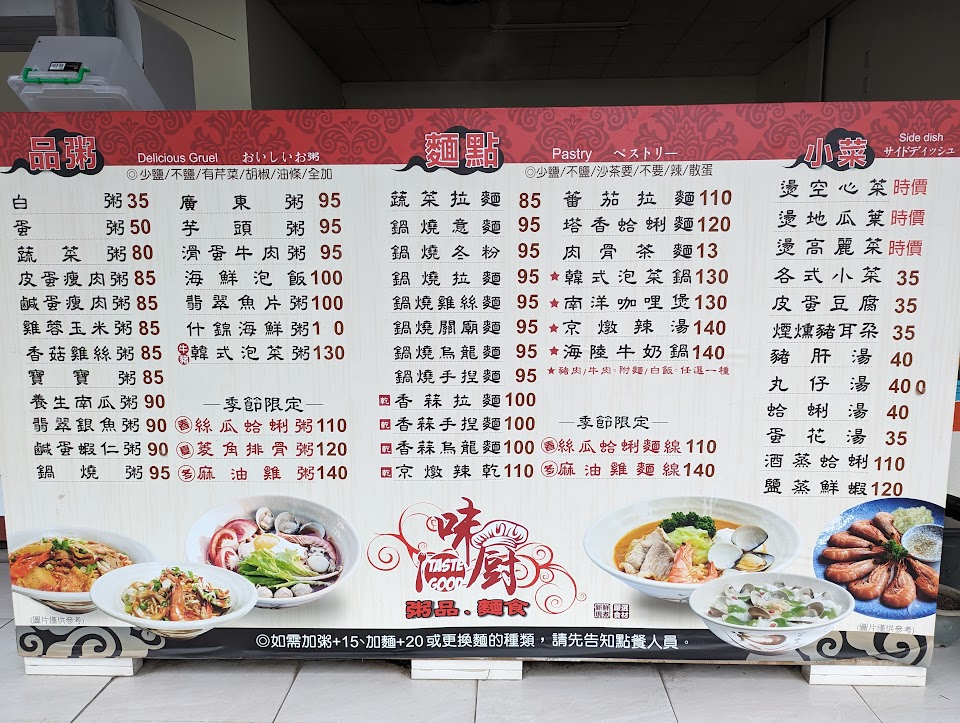 品粥 Delicious Gruel おいしいお粥
◎少鹽/不鹽/有芹菜/胡椒/油條/全加
白粥35
蛋粥50
蔬菜粥80
皮蛋瘦肉粥85
鹹蛋瘦肉粥85
雞蓉玉米粥85
香菇雞絲粥85
寶寶粥85
養生南瓜粥90
翡翠銀魚粥90
鹹蛋蝦仁粥90
鍋燒粥95
廣東粥95
芋頭粥95
滑蛋牛肉粥95
海鮮泡飯100
翡翠魚片粥100
什錦海鮮粥1 0
韓式泡菜粥130
—季節限定—
春絲瓜蛤蜊粥110
夏菱角排骨粥120
冬麻油雞粥140
麵點 Pastry ペストリー
◎少鹽/不鹽/沙茶要/不要/辣/散蛋
蔬菜拉麵85
鍋燒意麵95
鍋燒冬粉95
鍋燒拉麵95
鍋燒雞絲麵95
鍋燒關廟麵95
鍋燒烏龍麵95
鍋燒手捏麵95
乾香蒜拉麵100
乾香蒜手捏麵100
乾香蒜烏龍麵100
乾京燉辣乾110
蕃茄拉麵110
塔香蛤蜊麵120
肉骨茶麵13
★韓式泡菜鍋130
★南洋咖哩煲130
★京燉辣湯140
★海陸牛奶鍋140
★豬肉/牛肉。附麵/白飯。任選一種
—季節限定—
春絲瓜蛤蜊麵線110
冬麻油雞麵線140
小菜 Side dish サイドディッシュ
燙空心菜時價
燙地瓜葉時價
燙高麗菜時價
各式小菜35
皮蛋豆腐35
煙燻豬耳朵35
豬肝湯40
丸仔湯400
蛤蜊湯40
蛋花湯35
酒蒸蛤蜊110
鹽蒸鮮蝦120
味廚
TASTE GOOD
粥品.麵食
新鮮現煮 嚴選食材
(圖片僅供參考)
(圖片僅供參考)
◎如需加粥+15、加麵+20或更換麵的種類，請先告知點餐人員。